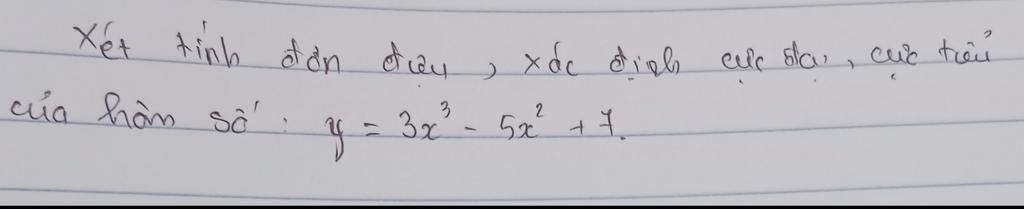 Xét tính đơn điệu, xác định cực đại, cực tiểu
của hàm số: y = 3x³ - 5x² + 7.